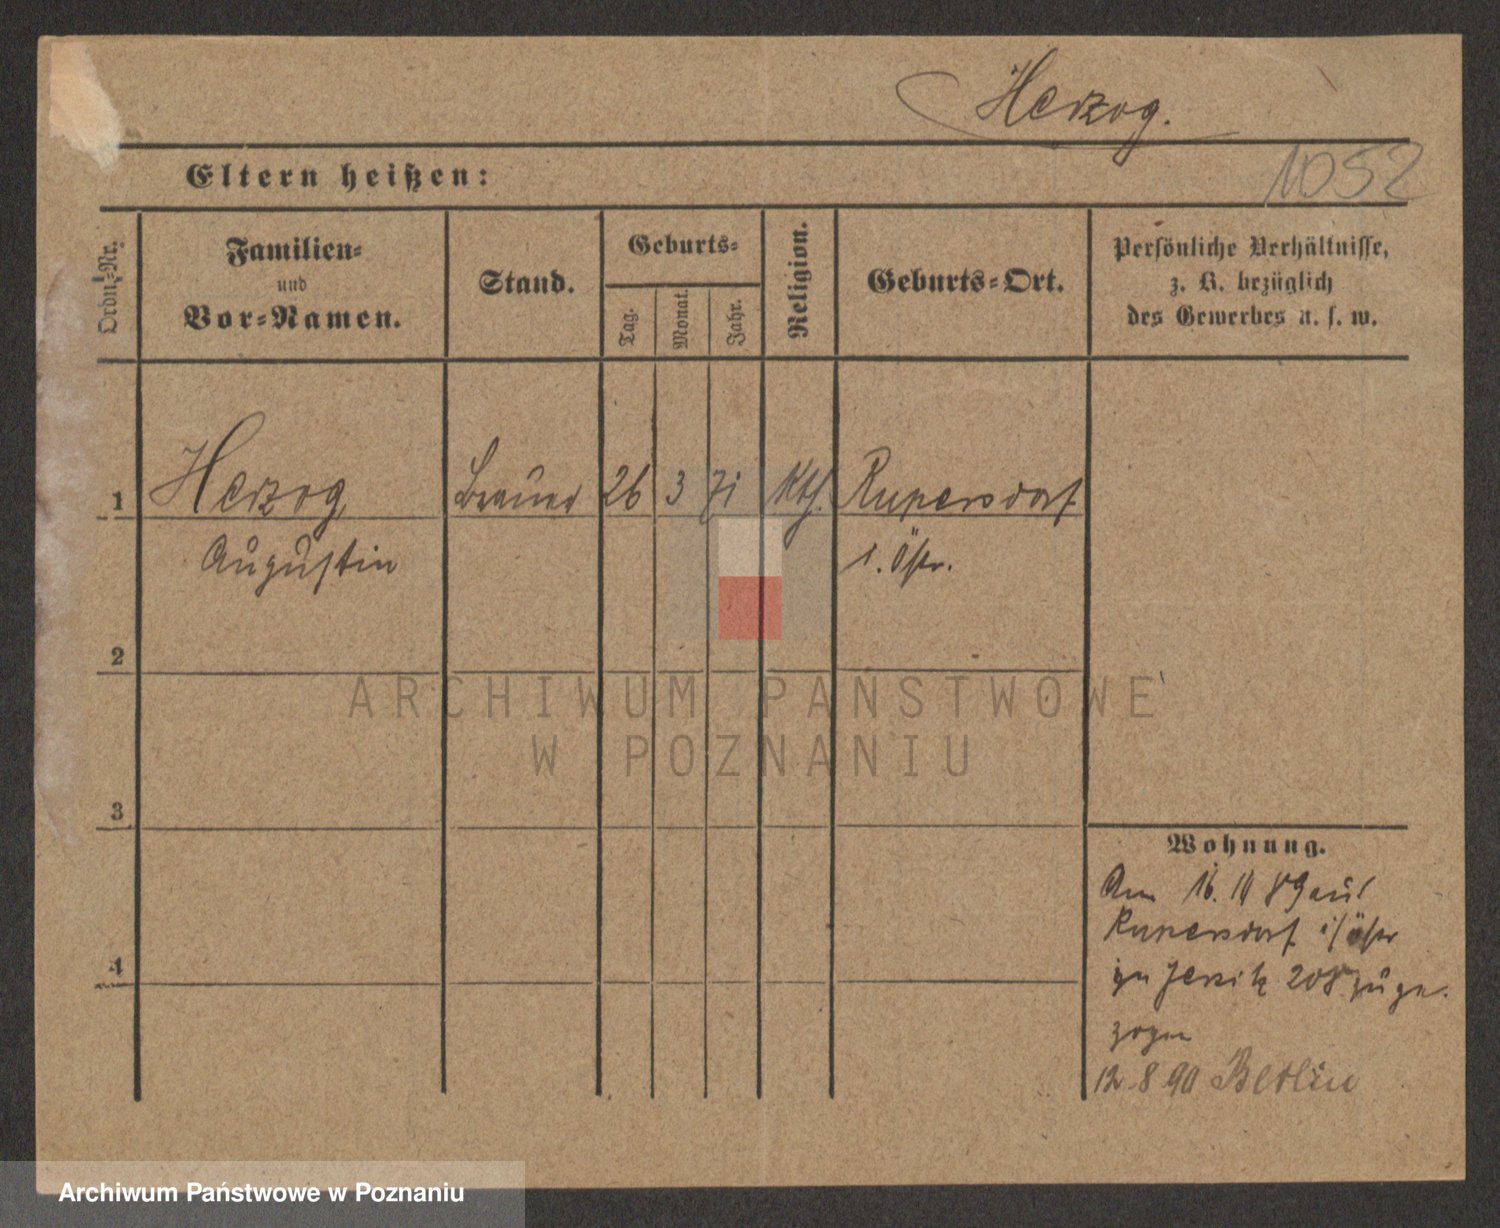 Herzog.
1052
Eltern heißen:
Ordn.-Nr.
Familien-
und
Vor-Namen.
Stand.
Geburts-
Tag.
Monat.
Jahr.
Religion.
Geburts-Ort.
Persönliche Verhältnisse,
z. B. bezüglich
des Gewerbes u. s. w.
1
Herzog,
Augustin
Brauer
26
3
71
kth.
Rupersdorf
i. Östr.
2
3
4
Wohnung.
Am 16. 11 89 aus
Rupersdorf i/östr
in Jersitz 208 zuge-
zogen
12.8 90 Berlin
ARCHIWUM PAŃSTWOWE
W POZNANIU
Archiwum Państwowe w Poznaniu